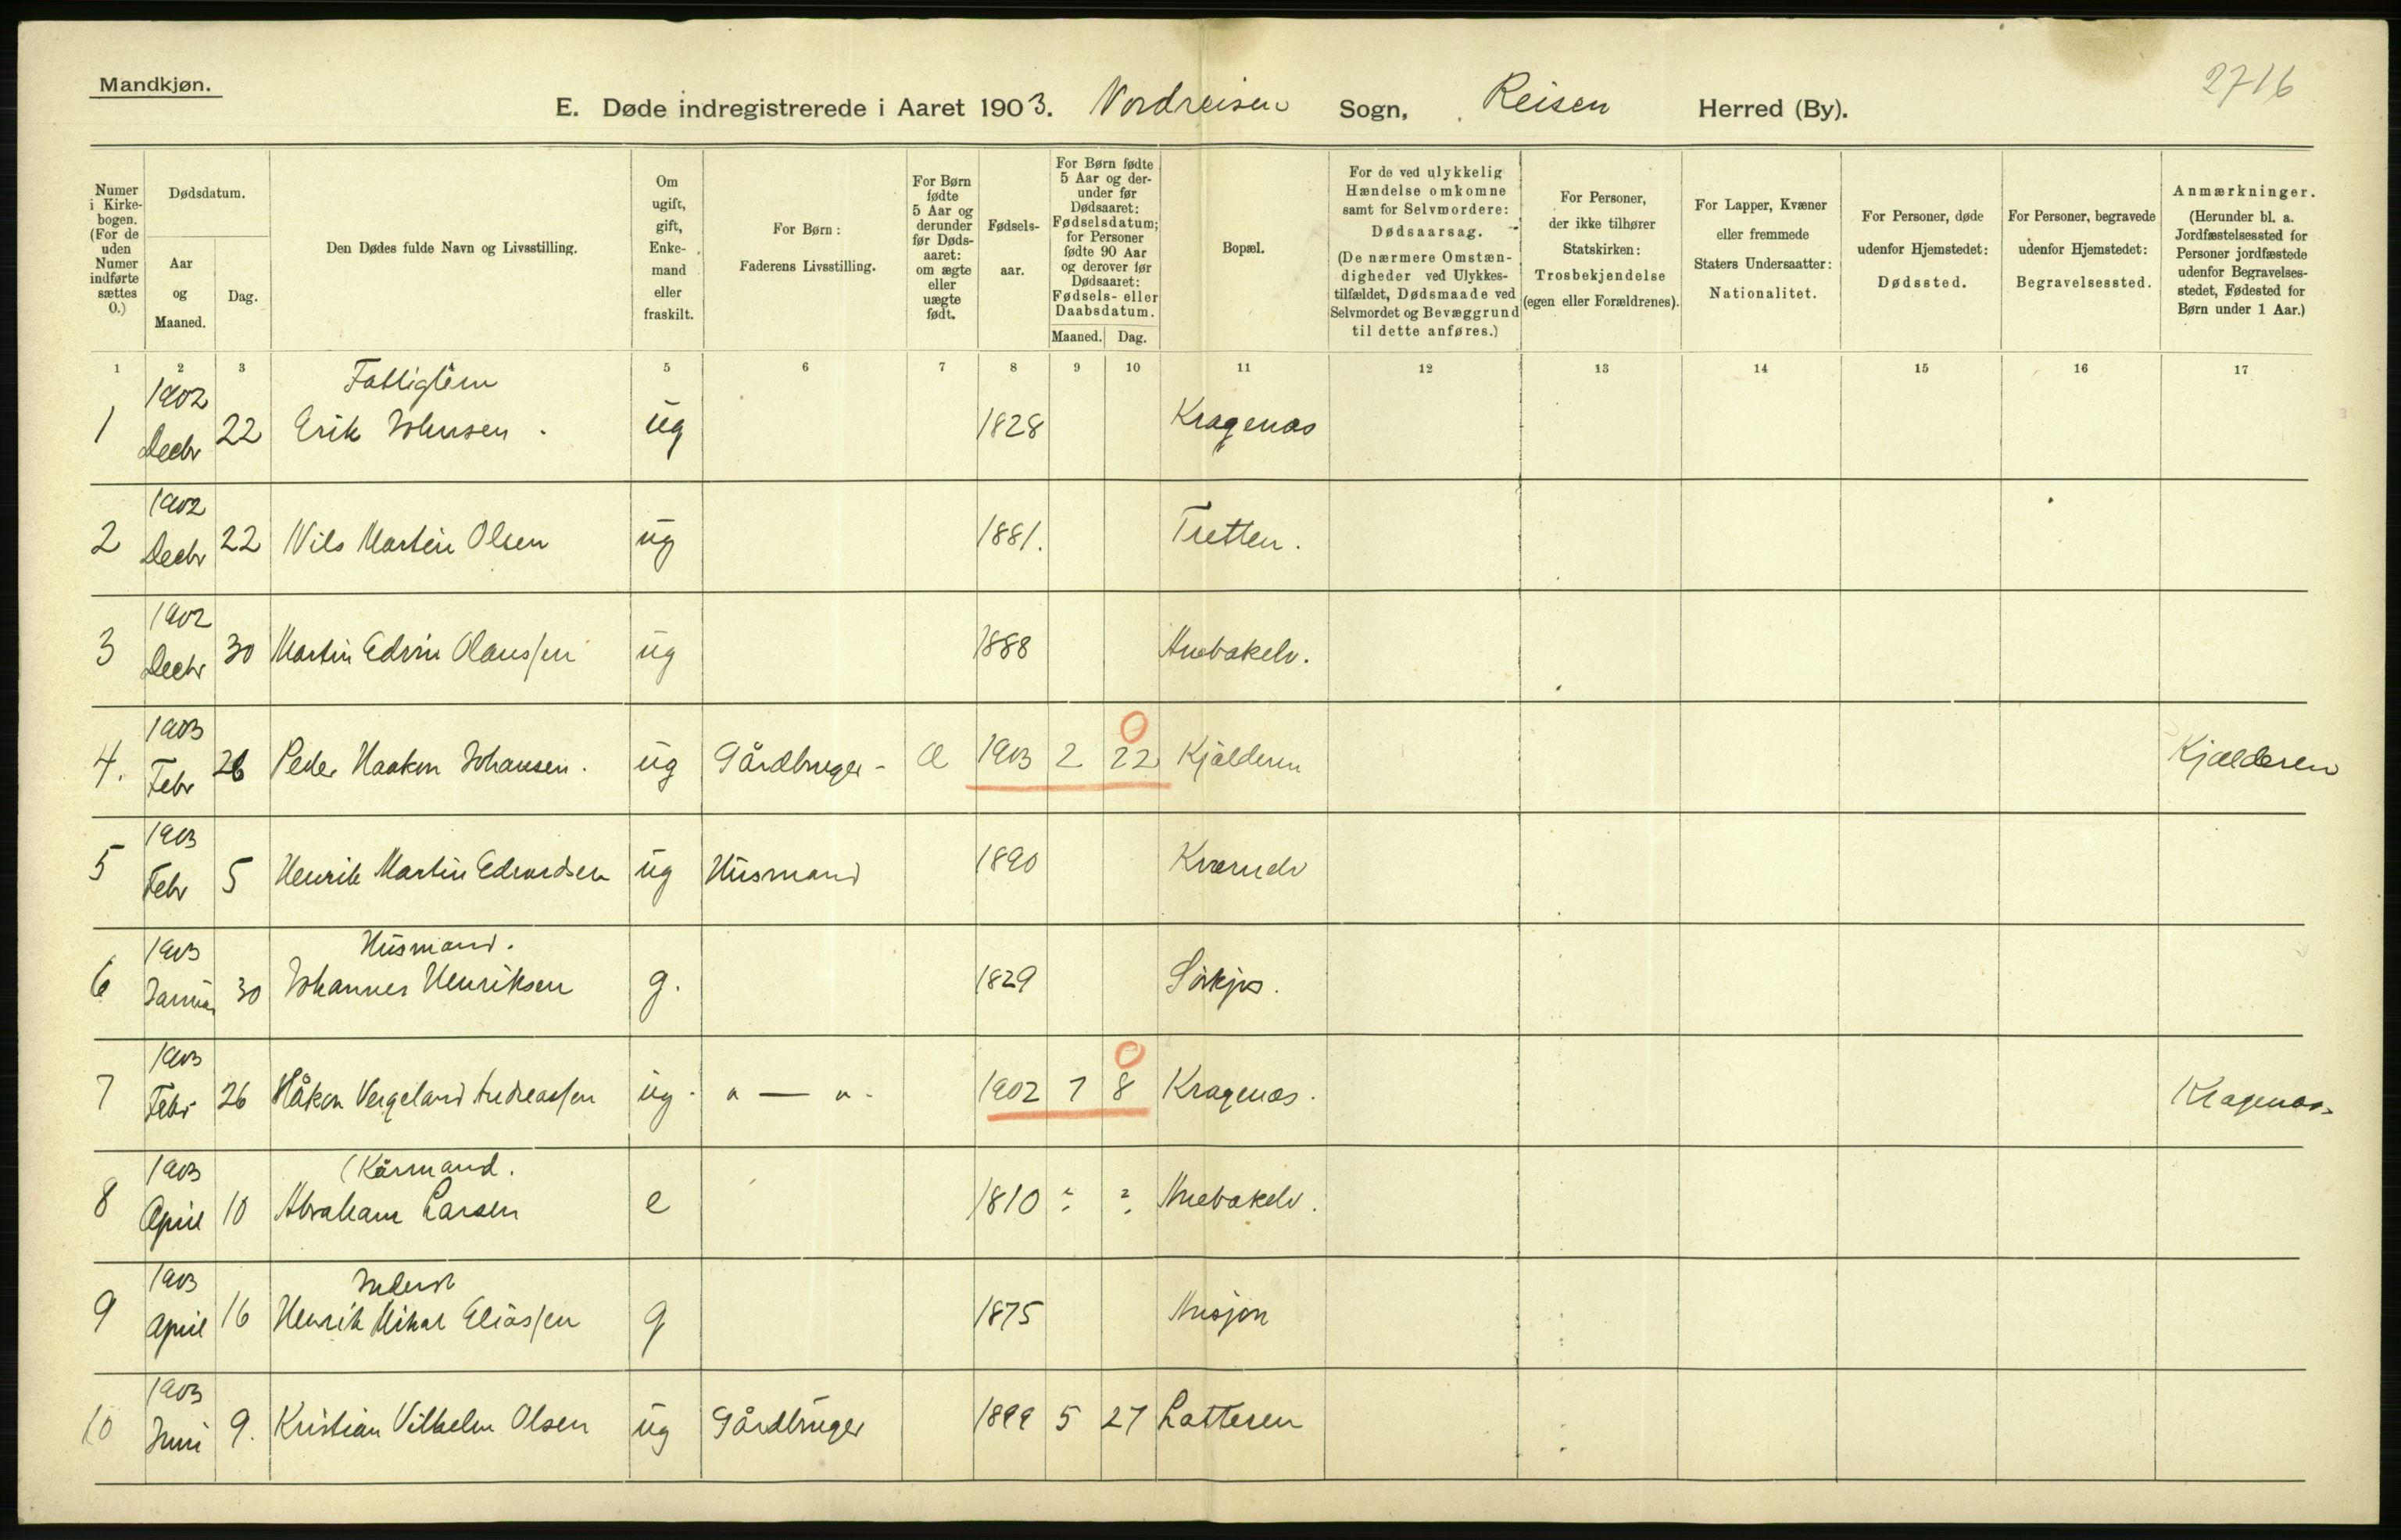 Mandkjøn.
2716
E. Døde indregistrerede i Aaret 1903. Nordreisen Sogn, Reisen Herred (By).
Numer i Kirke-bogen. (For de uden Numer indførte sættes 0.)
Dødsdatum.
Aar og Maaned.
Dag.
Den Dødes fulde Navn og Livsstilling.
Om ugift, gift, Enke-mand eller fraskilt.
For Børn: Faderens Livsstilling.
For Børn fødte 5 Aar og derunder før Døds-aaret: om ægte eller uægte født.
Fødsels-aar.
For Børn fødte 5 Aar og der-under før Dødsaaret: Fødselsdatum; for Personer fødte 90 Aar og derover før Dødsaaret: Fødsels- eller Daabsdatum.
Maaned. Dag.
Bopæl.
For de ved ulykkelig Hændelse omkomne samt for Selvmordere: Dødsaarsag. (De nærmere Omstæn-digheder ved Ulykkes-tilfældet, Dødsmaade ved Selvmordet og Bevæggrund til dette anføres.)
For Personer, der ikke tilhører Statskirken: Trosbekjendelse (egen eller Forældrenes).
For Lapper, Kvæner eller fremmede Staters Undersaatter: Nationalitet.
For Personer, døde udenfor Hjemstedet: Dødssted.
For Personer, begravede udenfor Hjemstedet: Begravelsessted.
Anmærkninger. (Herunder bl. a. Jordfæstelsessted for Personer jordfæstede udenfor Begravelses-stedet, Fødested for Børn under 1 Aar.)
1 2 3 4 5 6 7 8 9 10 11 12 13 14 15 16 17
1902 Fattiglem
1 Decbr 22 Erik Johnsen ug 1828 Kragenæs
1902
2 Decbr 22 Nils Martin Olsen ug 1881. Tretten.
1902
3 Decbr 30 Martin Edvin Olaussen ug 1888
1903 0
4. Febr 26 Peder Haakon Johansen. ug Gårdbruger - Æ 1903 2 22 Kjælderen Kjælderen
1903
5 Febr 5 Henrik Martin Edvardsen ug Husmand 1890 Kværnelv
1903 Husmand.
6 Januar 30 Johannes Henriksen g. 1829 Sørkjos.
1903 0
7 Febr 26 Håkon Vergeland Andreassen ug - " — " - 1902 7 8 Kragenæs. Kragenæs.
1903 (Kårmand.
8 April 10 Abraham Larsen e 1810 ? ?
1903 Inderst
9 April 16 Henrik Mikal Eliassen g 1875
1903
10 Juni 9. Kristian Vilhelm Olsen ug Gårdbruger 1899 5 27 Latteren